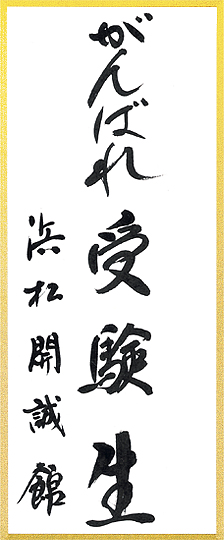 がんばれ受験生
浜松開誠館